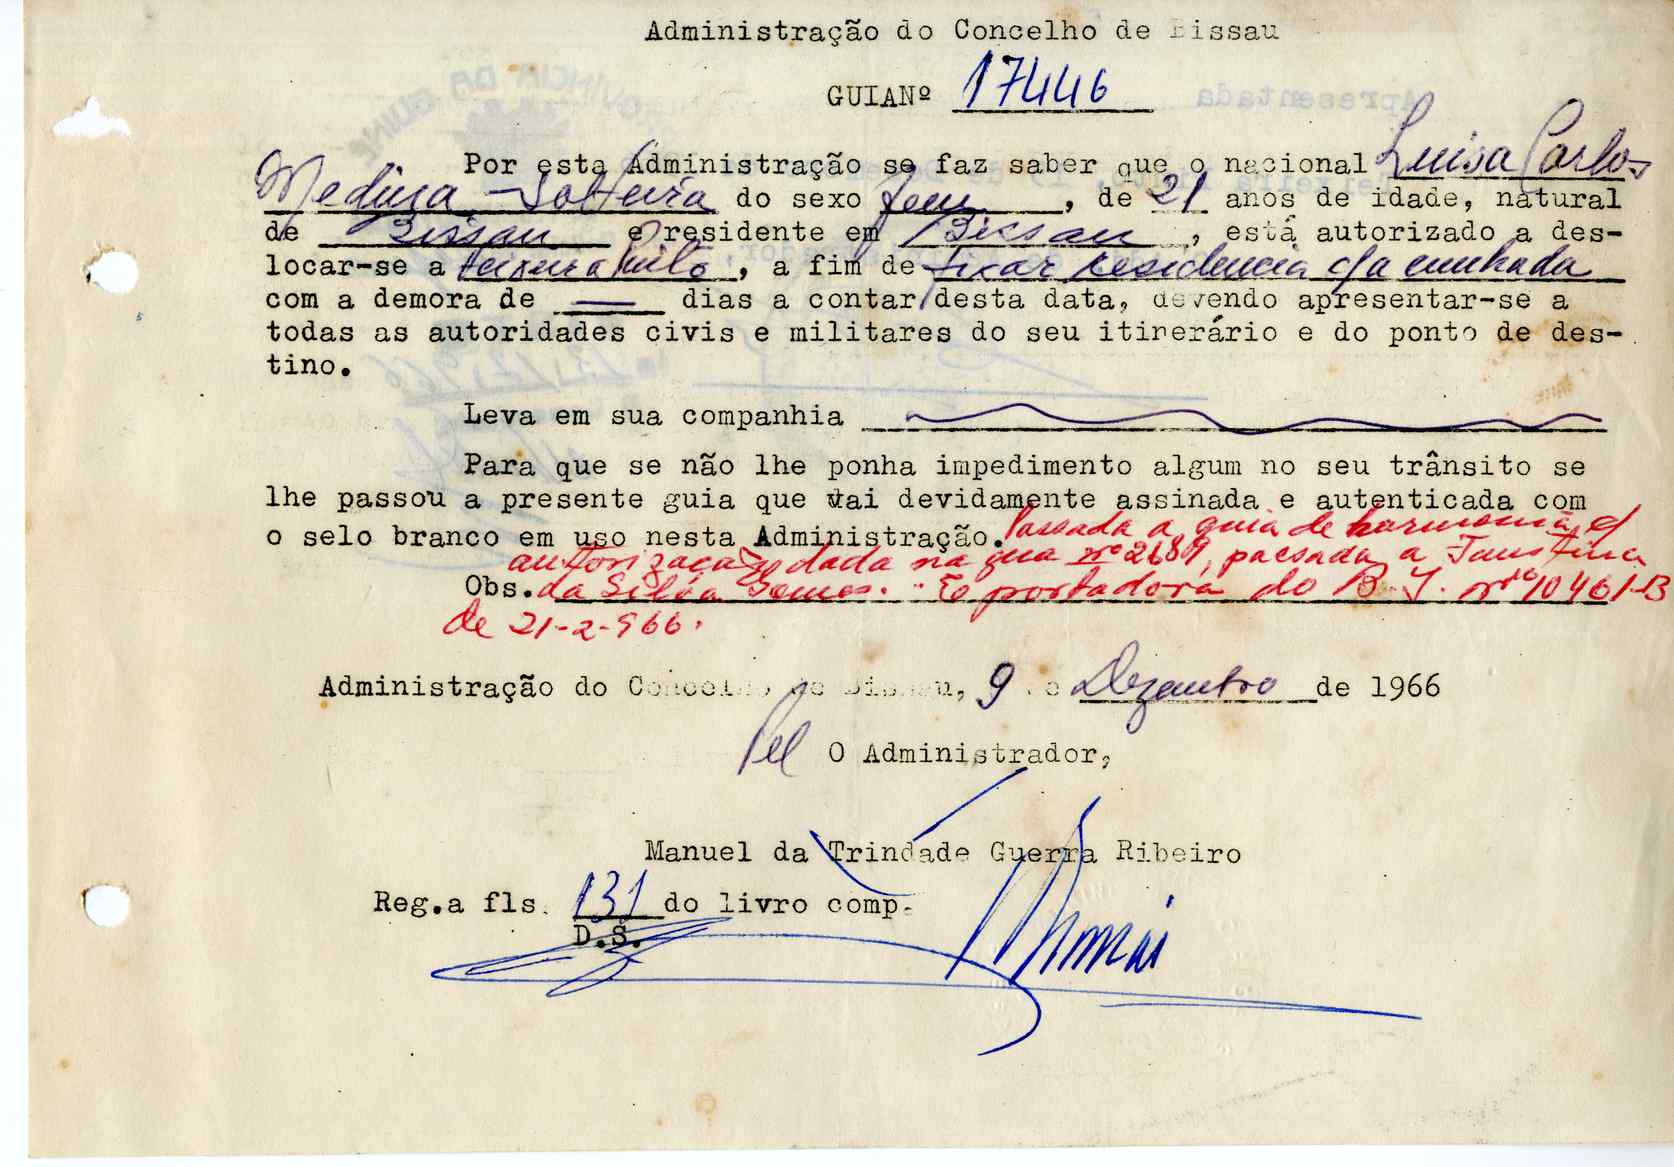 Administração do Concelho de Bissau
GUIANº 17446
Por esta Administração se faz saber que o nacional Luisa Carlos
Medina Solteira do sexo fem , de 21 anos de idade, natural
de Bissau e residente em Bissau , está autorizado a des-
locar-se a Teixeira Pinto , a fim de fixar residencia c/a cunhada
com a demora de — dias a contar desta data, devendo apresentar-se a
todas as autoridades civis e militares do seu itinerário e do ponto de des-
tino.
Leva em sua companhia
Para que se não lhe ponha impedimento algum no seu trânsito se
lhe passou a presente guia que vai devidamente assinada e autenticada com
o selo branco em uso nesta Administração. Passada a guia de harmonia c/
autorização dada na guia nº 2689, passada a Faustina
Obs. da Silva Gomes. É portadora do B.I. nº 10461-B
de 21-2-966.
Administração do Concelho de Bissau, 9 de Dezembro de 1966
Pel O Administrador,
Manuel da Trindade Guerra Ribeiro
Reg.a fls. 131 do livro comp.
D.S.